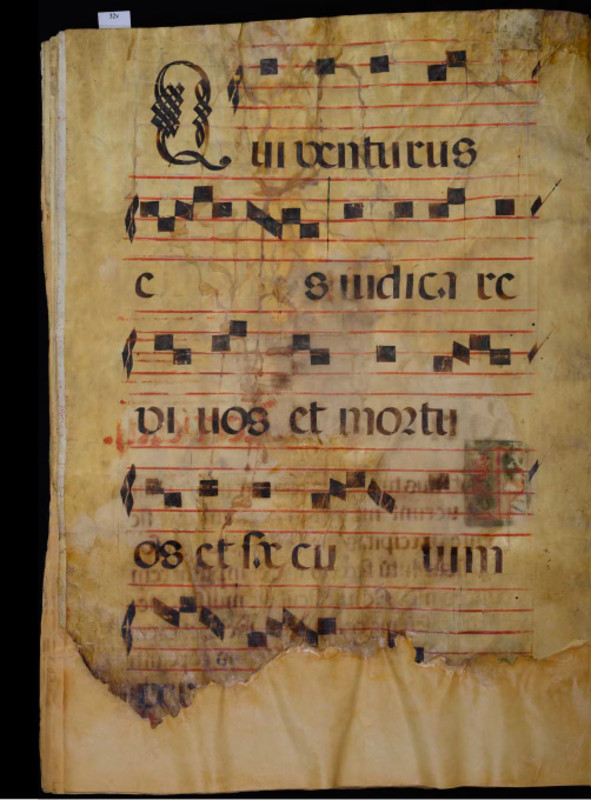 32v
Qui venturus
e s iudica re
vi uos et mortu
os et sæcu lum